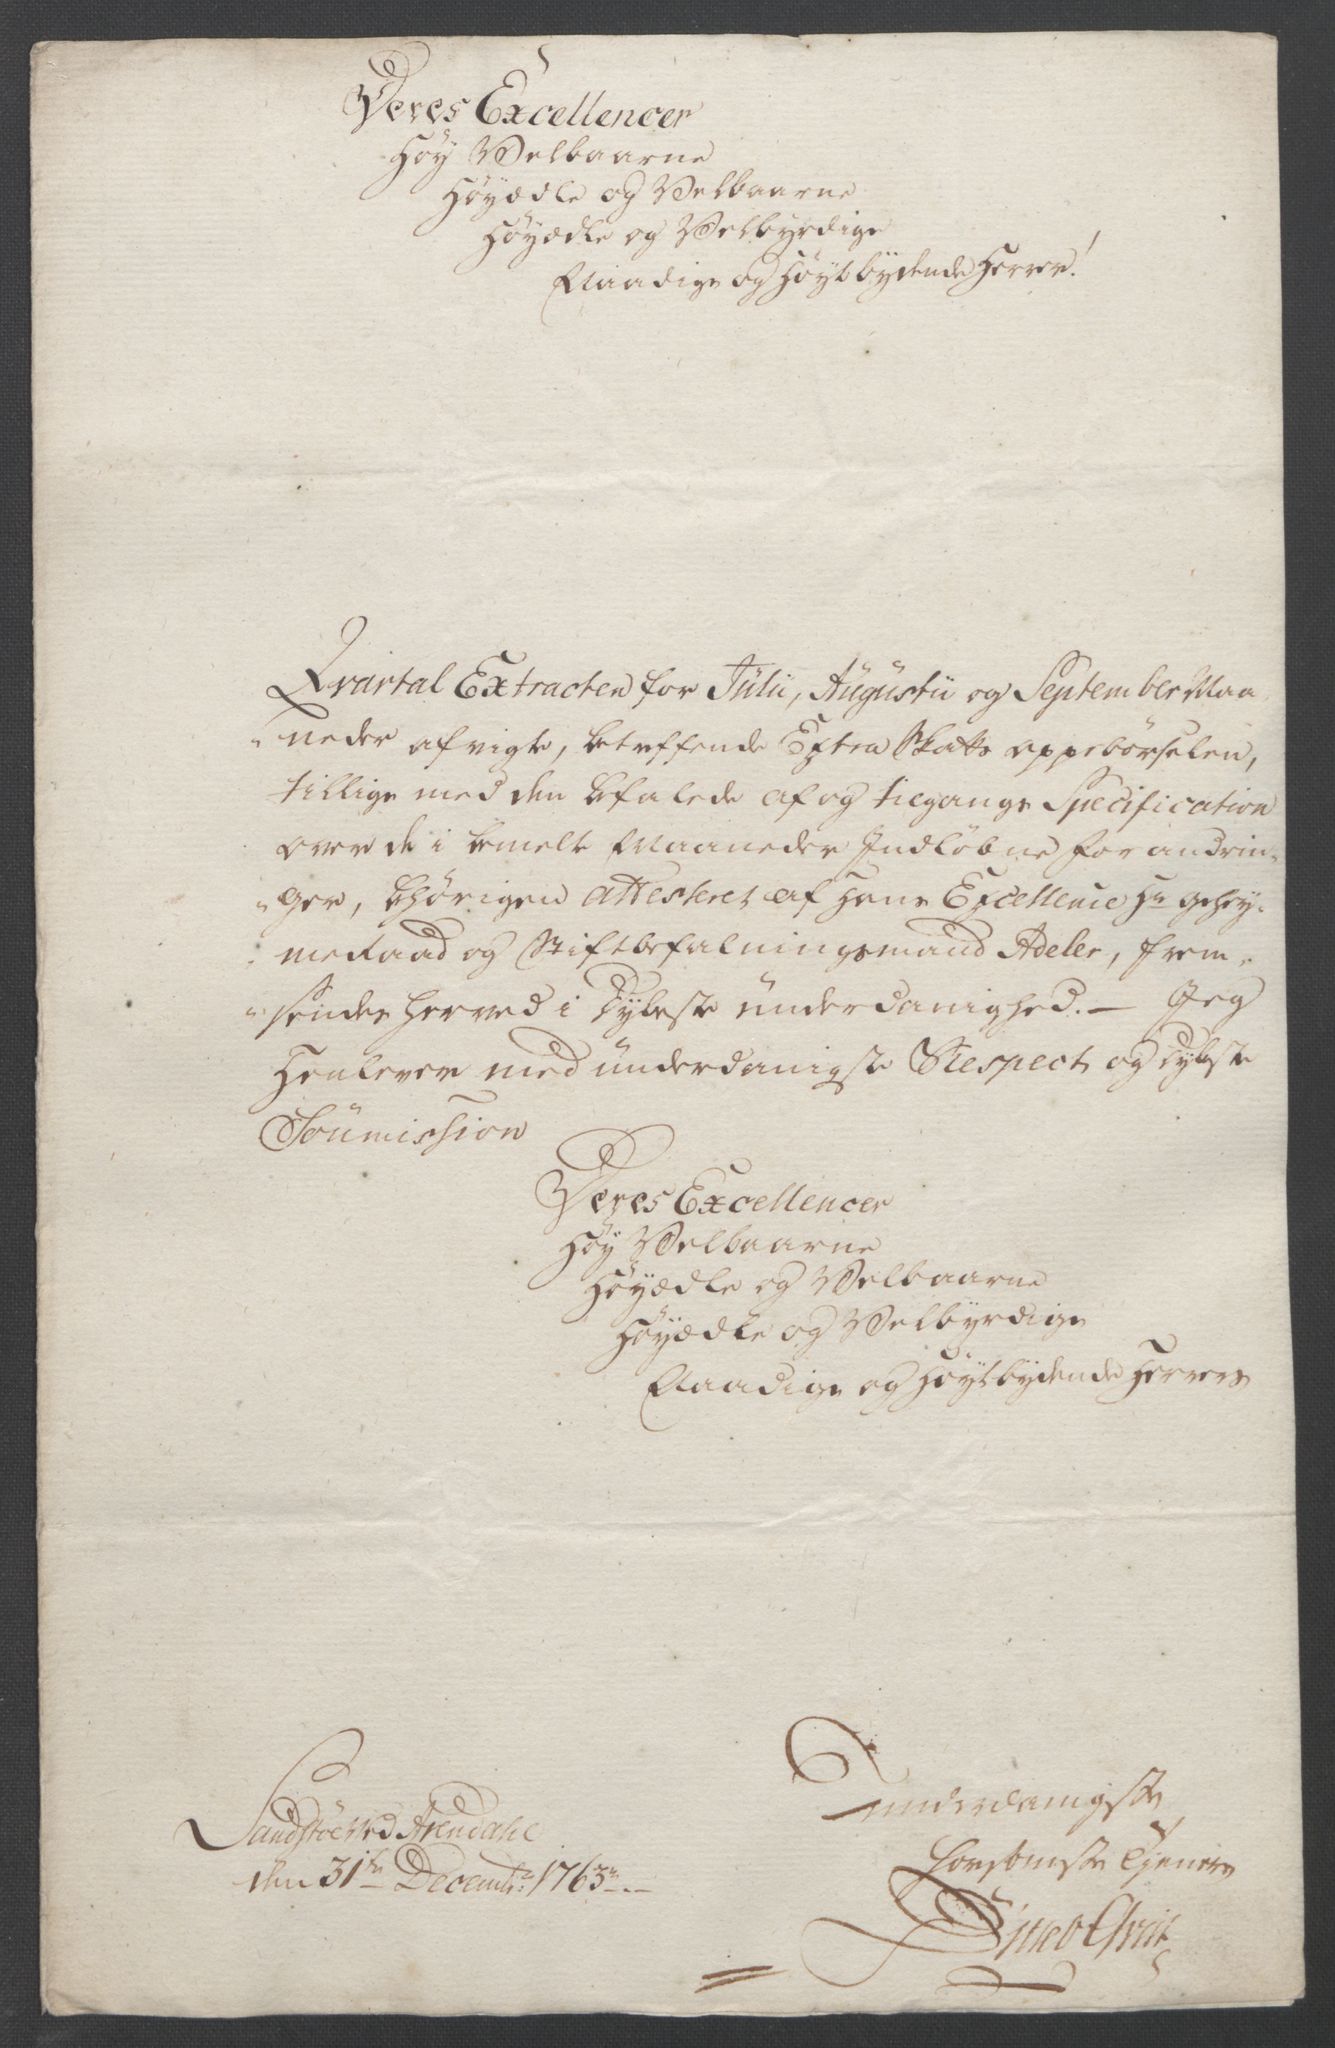 Deres Excellencer
Höy Velbaarne
Höyædle og Velbaarne
Höyædle og Velbyrdige
Naadige og Höytbydende Herrer!
Qvartal Extracten for Julii, Augustii og September Maa
neder afvigte, betreffende Extra Skatts oppebörselen,
tillige med den befalede af og tilgangs Specification
over de i bemelte Maaneder Indlöbne forandrin-
ger, behörigen attesteret af Hans Excellence Hr. Gehey-
meRaad og Stiftbefalningsmand Adeler, frem-
sendes herved i dybeste underdanighed. — Jeg
Henlever med underdanigste Respect og dybeste
Soumission
Deres Excellencer
Höy Velbaarne
Höyædle og Velbaarne
Höyædle og Velbyrdige
Naadige og Höytbydende Herrers
underdanigste
Sandstöe ved Arendahl
den 31te Decembr: 1763
Tjenere